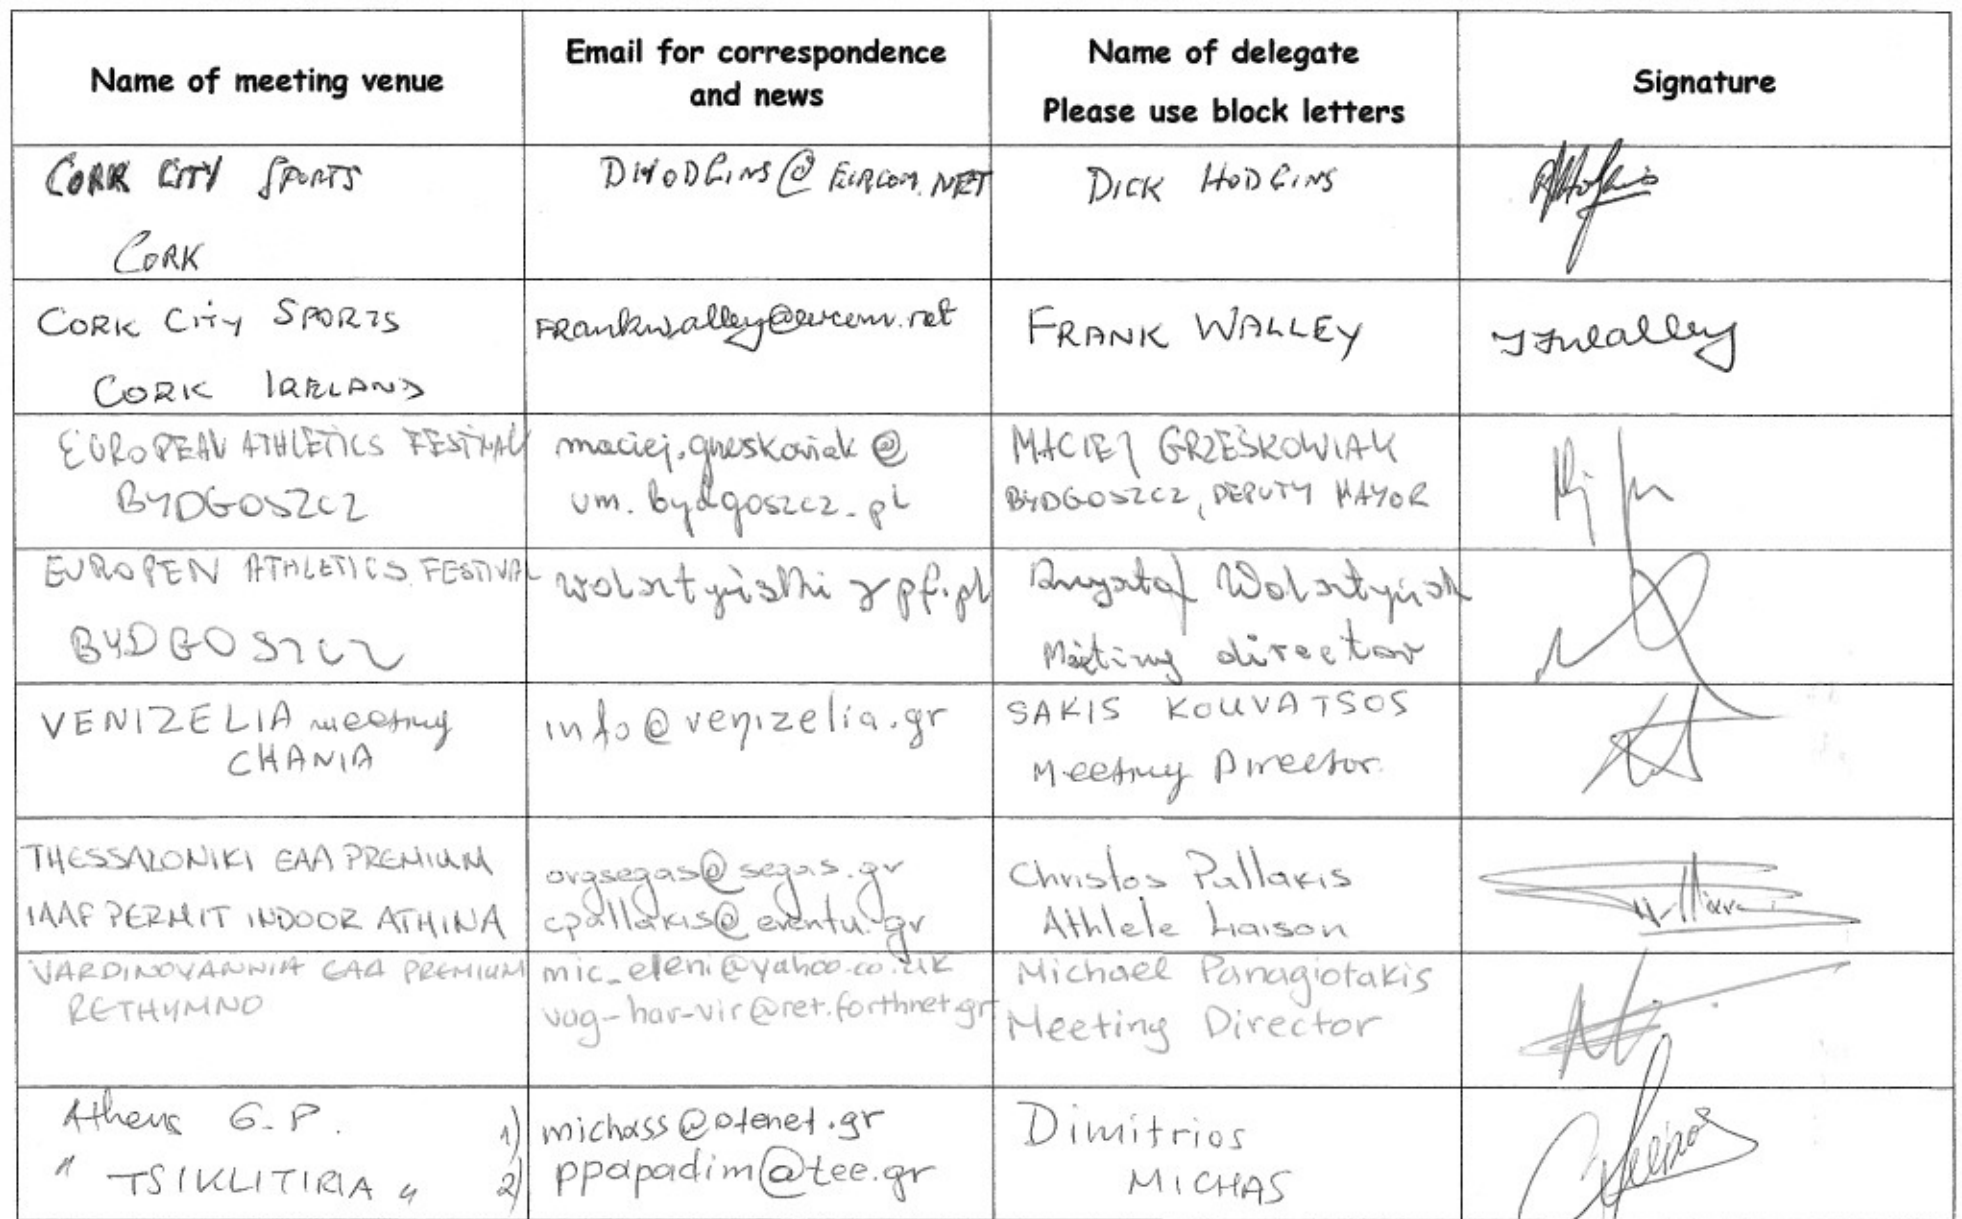 Name of meeting venue
Email for correspondence
and news
Name of delegate
Please use block letters
Signature
CORK CITY SPORTS
CORK
DHODGINS@EIRCOM.NET
DICK HODGINS
CORK CITY SPORTS
CORK IRELAND
FRankwalley@eircom.net
FRANK WALLEY
EUROPEAN ATHLETICS FESTIVAL
BYDGOSZCZ
maciej.grzeskowiak@
um.bydgoszcz.pl
MACIEJ GRZEŚKOWIAK
BYDGOSZCZ, DEPUTY MAYOR
EUROPEN ATHLETICS FESTIVAL
BYDGOSZCZ
pf.pl
Meeting director
VENIZELIA meeting
CHANIA
info@venizelia.gr
SAKIS KOUVATSOS
Meeting Director
THESSALONIKI EAA PREMIUM
IAAF PERMIT INDOOR ATHINA
orgsegas@segas.gr
cpallakis@eventu.gr
Christos Pallakis
Athlete Liaison
VARDINOYANNIA EAA PREMIUM
RETHYMNO
mic_eleni@yahoo.co.uk
vag-har-vir@ret.forthnet.gr
Michael Panagiotakis
Meeting Director
Athens G.P.
" TSIKLITIRIA "
1) michass@otenet.gr
2) ppapadim@tee.gr
Dimitrios
MICHAS